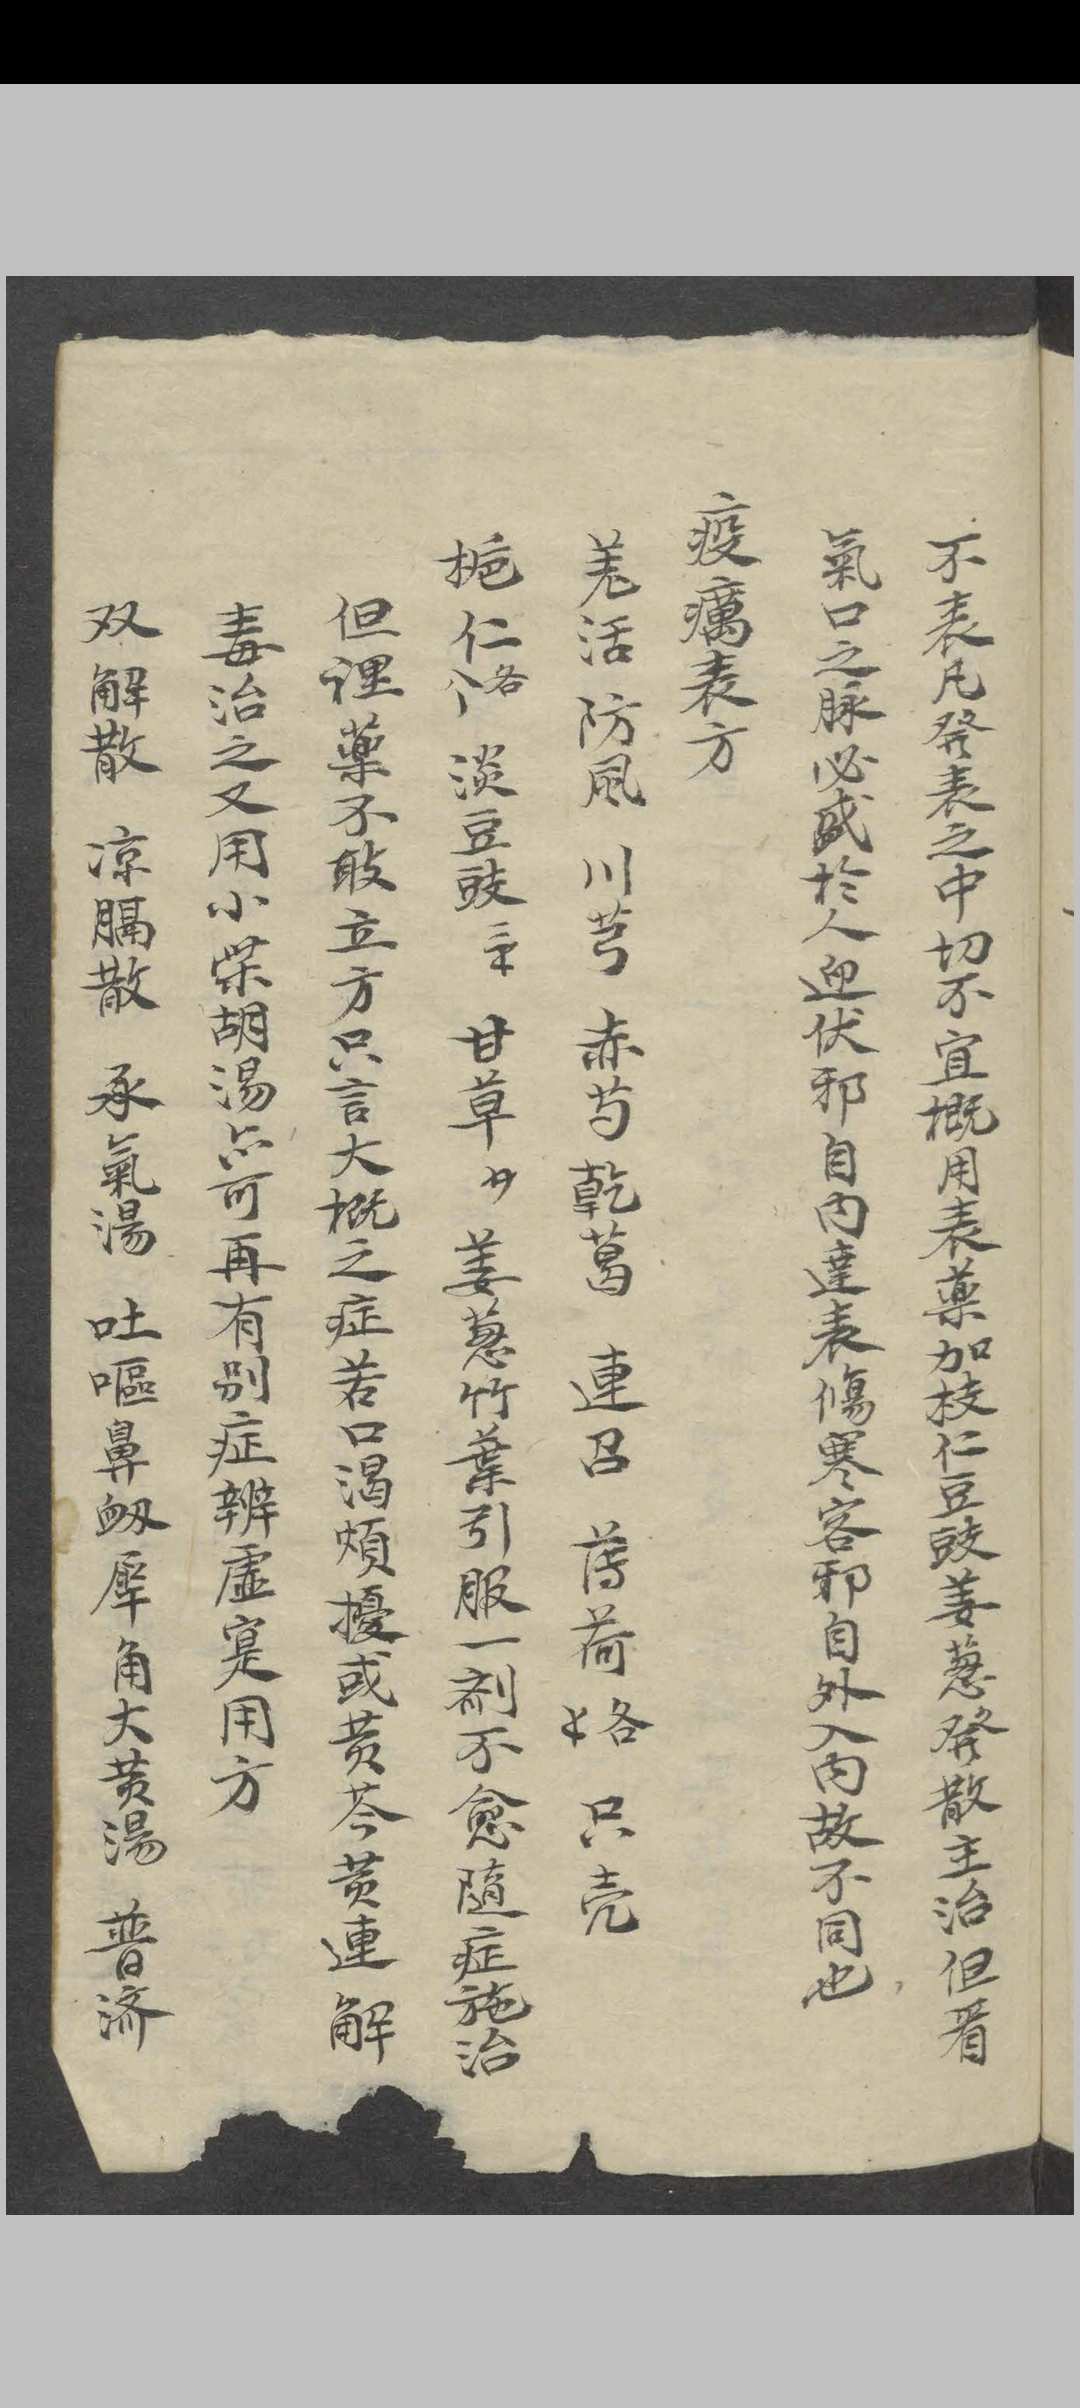 不表凡發表之中切不宜概用表藥加枝仁豆豉姜葱發散主治但看
氣口之脉必盛於人迎伏邪自內達表傷寒客邪自外入內故不同也
疫癘表方
羌活 防風 川芎 赤芍 乾葛 連召 薄荷 各 只壳
梔仁 各 淡豆豉 甘草 姜葱竹葉引服一剤不愈隨症施治
但裡藥不敢立方只言大概之症若口渴煩擾或黄芩黄連解
毒治之又用小柴胡湯亦可再有别症辨虛寔用方
双解散 凉膈散 承氣湯 吐嘔鼻衂犀角大黄湯 普济